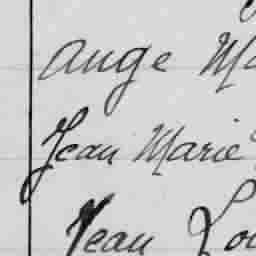 Ange
Jean Marie
Jean